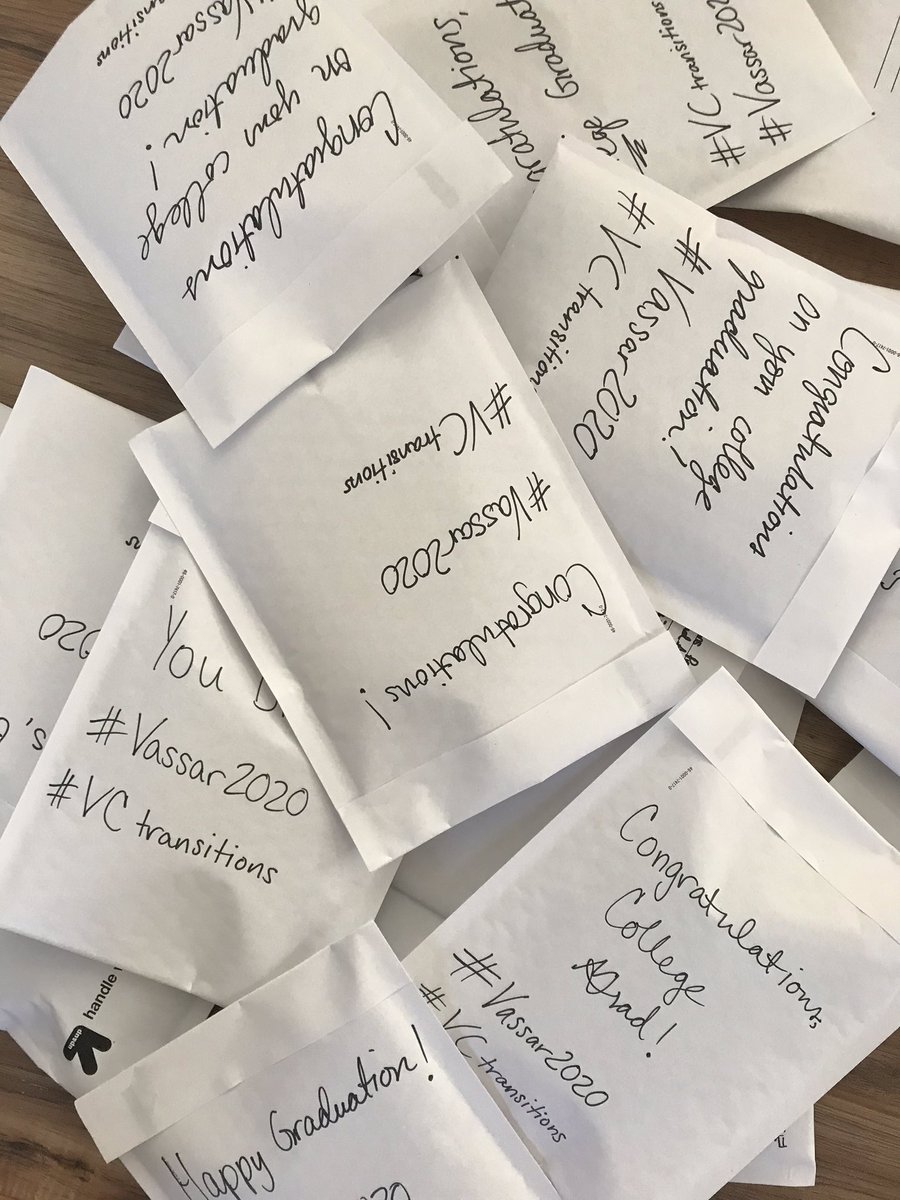 Congratulations
on you college
graduation!
#Vassar2020
transitions
#VCtransitions
#Vassar20
Graduat
Congratulations
on you college
graduation!
#Vassar2020
#VCtransition
Congratulations!
#Vassar2020
#VCtransitions
020
You
#Vassar2020
#VCtransitions
Congratulations,
College
Grad!
#Vassar2020
#VCtransitions
up&up
handle
Happy Graduation!